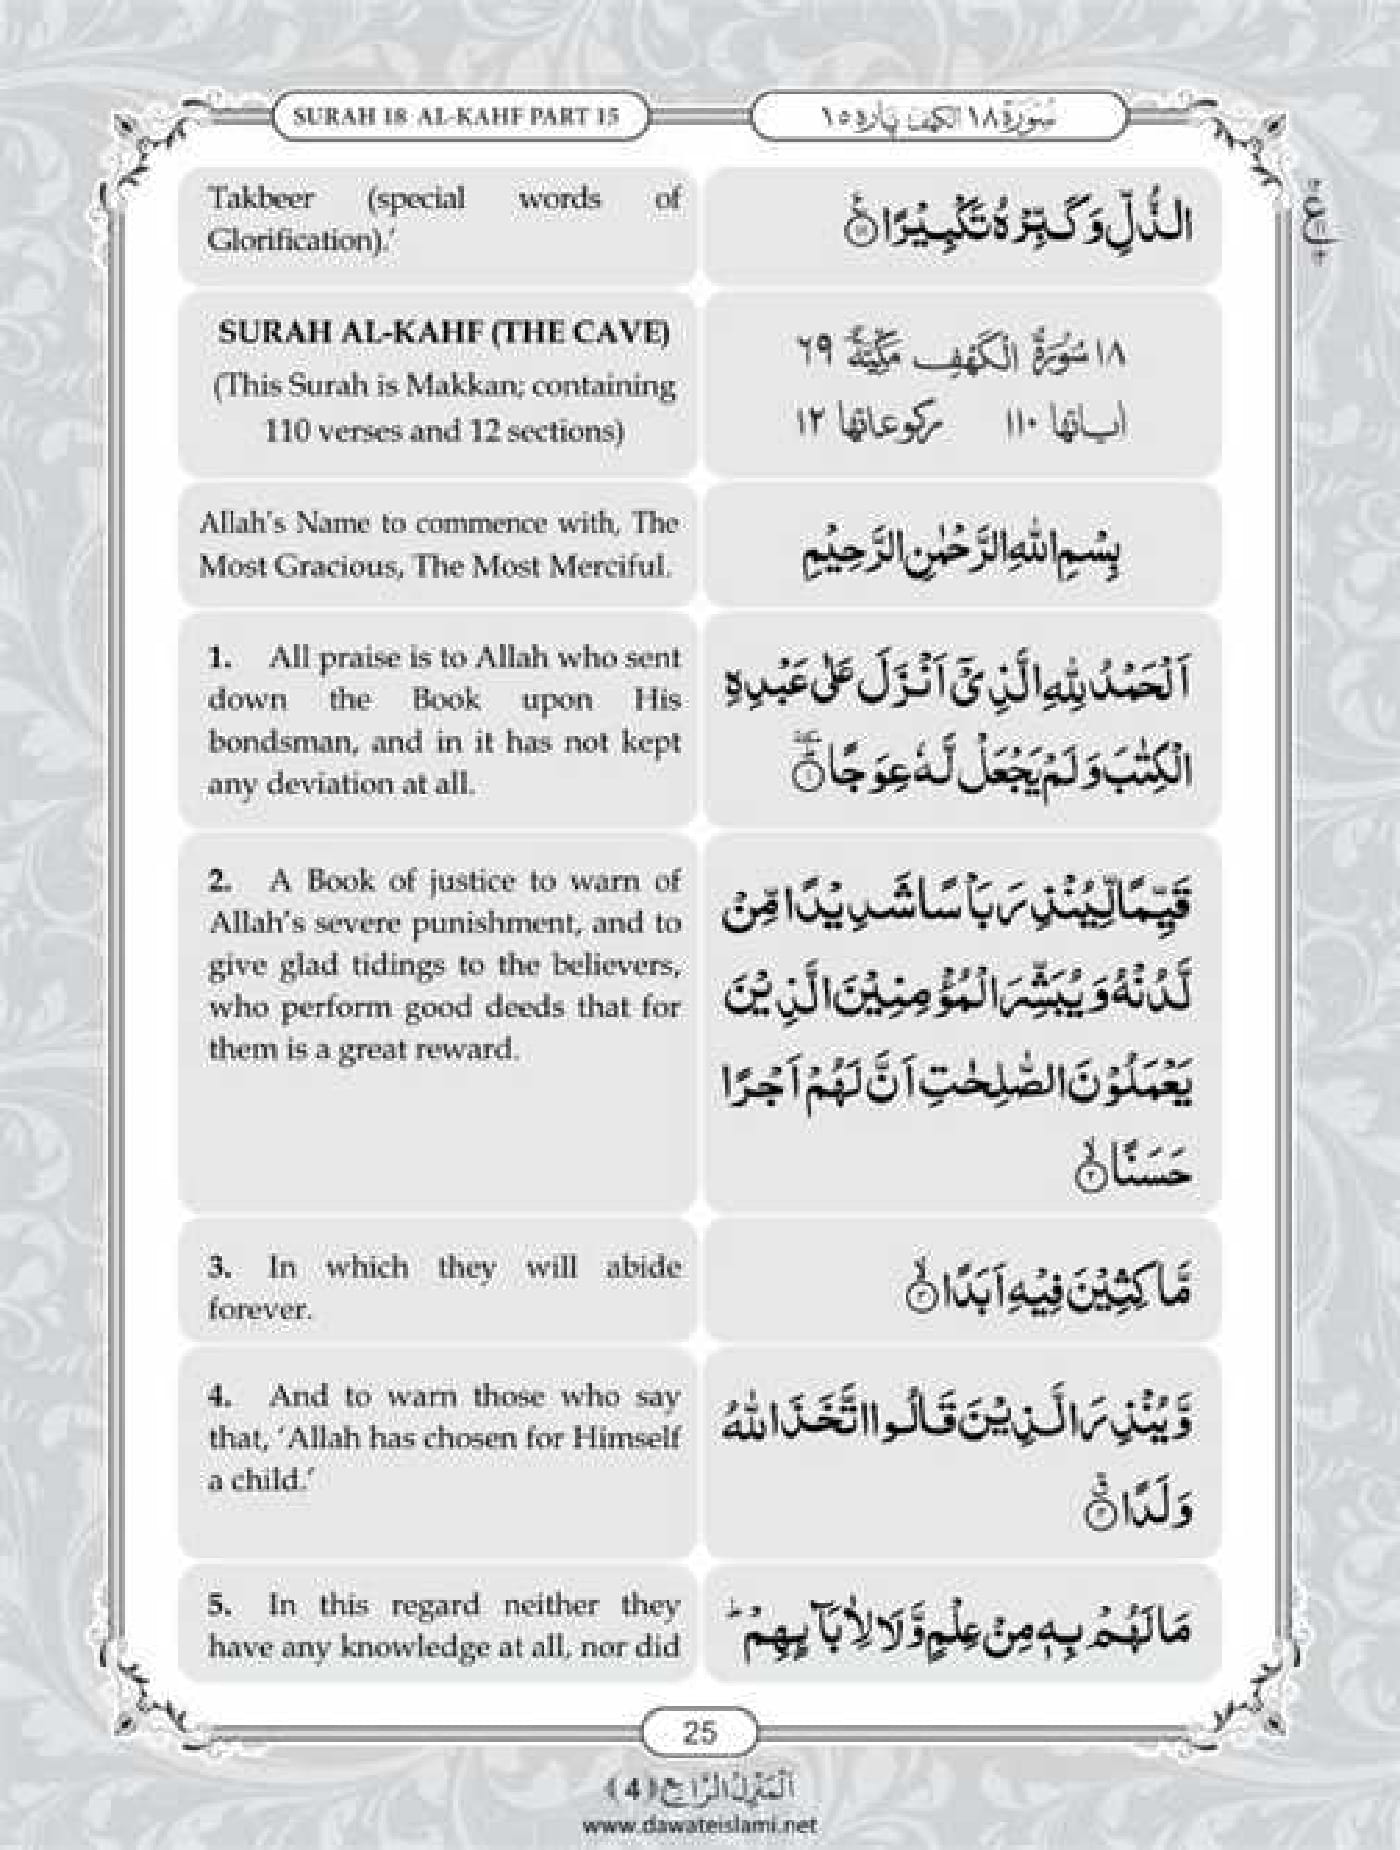 SURAH 18 AL-KAHF PART 15
سُوْرَة ١٨ الكهف پاره ١٥
Takbeer (special words of
Glorification).’
الذُّلِّ وَكَبِّرْهُ تَكْبِيْرًا
SURAH AL-KAHF (THE CAVE)
(This Surah is Makkan; containing
110 verses and 12 sections)
١٨ سُوْرَةُ الْكَهْفِ مَكِّيَّةٌ ٦٩
اٰياتها ١١٠ ركوعاتها ١٢
Allah’s Name to commence with, The
Most Gracious, The Most Merciful.
بِسْمِ اللّٰهِ الرَّحْمٰنِ الرَّحِيْمِ
1. All praise is to Allah who sent
down the Book upon His
bondsman, and in it has not kept
any deviation at all.
اَلْحَمْدُ لِلّٰهِ الَّذِيْۤ اَنْزَلَ عَلٰى عَبْدِهِ
الْكِتٰبَ وَلَمْ يَجْعَلْ لَّهٗ عِوَجًا ١
2. A Book of justice to warn of
Allah’s severe punishment, and to
give glad tidings to the believers,
who perform good deeds that for
them is a great reward.
قَيِّمًا لِّيُنْذِرَ بَاْسًا شَدِيْدًا مِّنْ
لَّدُنْهُ وَيُبَشِّرَ الْمُؤْمِنِيْنَ الَّذِيْنَ
يَعْمَلُوْنَ الصّٰلِحٰتِ اَنَّ لَهُمْ اَجْرًا
حَسَنًا ٢
3. In which they will abide
forever.
مَّاكِثِيْنَ فِيْهِ اَبَدًا ٣
4. And to warn those who say
that, ‘Allah has chosen for Himself
a child.’
وَّيُنْذِرَ الَّذِيْنَ قَالُوا اتَّخَذَ اللّٰهُ
وَلَدًا ٤
5. In this regard neither they
have any knowledge at all, nor did
مَا لَهُمْ بِهٖ مِنْ عِلْمٍ وَّلَا لِاٰبَآىِٕهِمْ ؕ
25
اَلْمَنْزِلُ الرَّابِع (4)
www.dawateislami.net